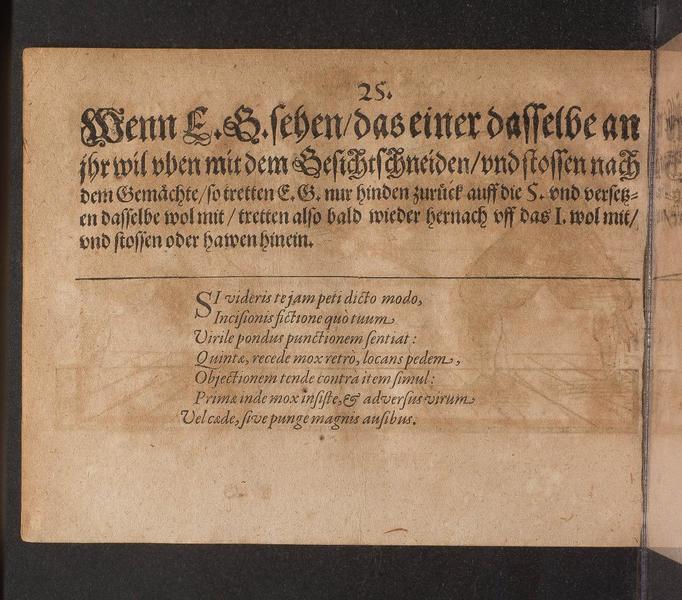 25.
Wenn E. G. sehen/das einer dasselbe an
jhr wil vben mit dem Gesichtschneiden/vnd stossen nach
dem Gemächte/so tretten E. G. nur hinden zurück auff die S. vnd versetz-
en dasselbe wol mit/ tretten also bald wieder hernach vff das I. wol mit/
vnd stossen oder hawen hinein.
SI videris te jam peti dicto modo,
Incisionis fictione quò tuum
Virile pondus punctionem sentiat:
Quintæ, recede mox retrò, locans pedem,
Objectionem tende contra item simul:
Primæ inde mox insiste, & adversus virum
Vel cæde, sive punge magnis ausibus.